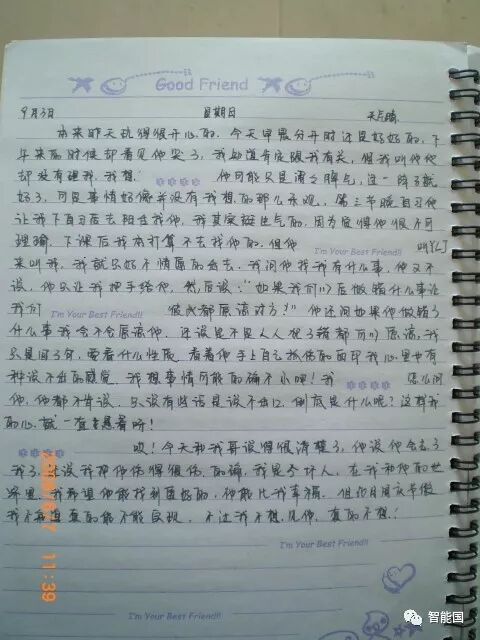 Good Friend
9月3日 星期日 天气晴
本来昨天玩得很开心的,今天早晨分开时还是好好的,下
午来后时候却看见他哭了,我知道肯定跟我有关,但我叫他他
却没有理我,我想 他可能只是闹个脾气,过一阵子就
好了,可是事情好像并没有我想的那么乐观,第三节晚自习他
让我下自习后去阳台找他,我其实挺生气的,因为觉得他很不可
理喻,下课后我本打算不去找他的,但他 叫
I'm Your Best Friend!!
来叫我,我就只好不情愿的出去,我问他找我有什么事,他又不
说,他只让我把手给他,然后说:"如果我们以后做错什么事让
我们 彼此都原谅对方!"他还问如果他做错了
I'm Your Best Friend!!
什么事我会不会原谅他,还说是不是人人犯了错都可以原谅,我
只是问了句,要看什么性质,看着他手上自己抓伤的面印我心里也有
种说不出的感觉,我想事情可能的确不小吧!我 怎么问
他,他都不肯说,只说有些话是说不出口,到底是什么呢?这样我
的心就一直悬着呀!
哎!今天和我哥说得很清楚了,他说他会忘了
我了,还说我把他伤得很伤,的确,我是个坏人,在我和他的世
界里,我希望他能找到更好的,他能比我幸福,但
我不知道真的能不能实现,不过我不想见他,真的不想!
I'm Your Best Friend!!
I'm Your Best Friend!!
11:39
智能国